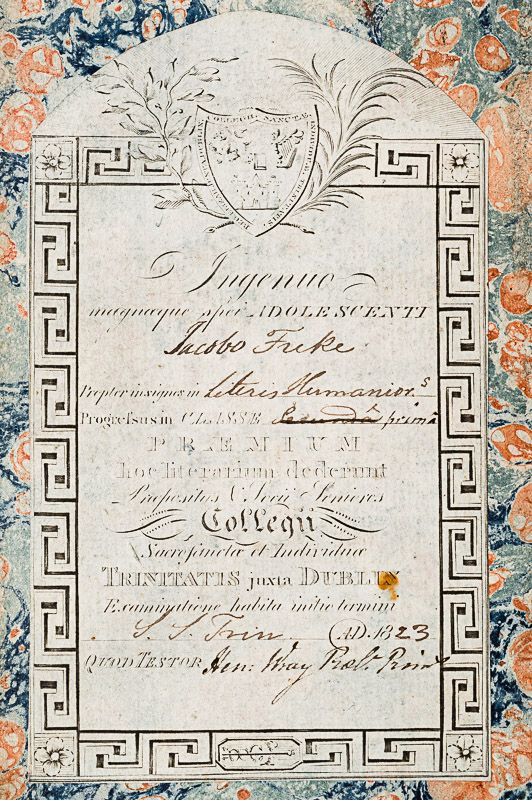 COLLEGII SANCTÆ
Ingenuo
magnæque spei ADOLESCENTI
Jacobo Freke
Propter insignes in Literis Humanior.s
Progreſsus in CLASSE Secundâ primâ
PRÆMIUM
hoc literarium dederunt
Præpositus & Socii Seniores
Collegii
Sacroſanctæ et Individuæ
TRINITATIS juxta DUBLIN
Examinatione habita initio termini
S. S. Trin. A.D. 1823
QUOD TESTOR Hen: Wray Præl. Prim